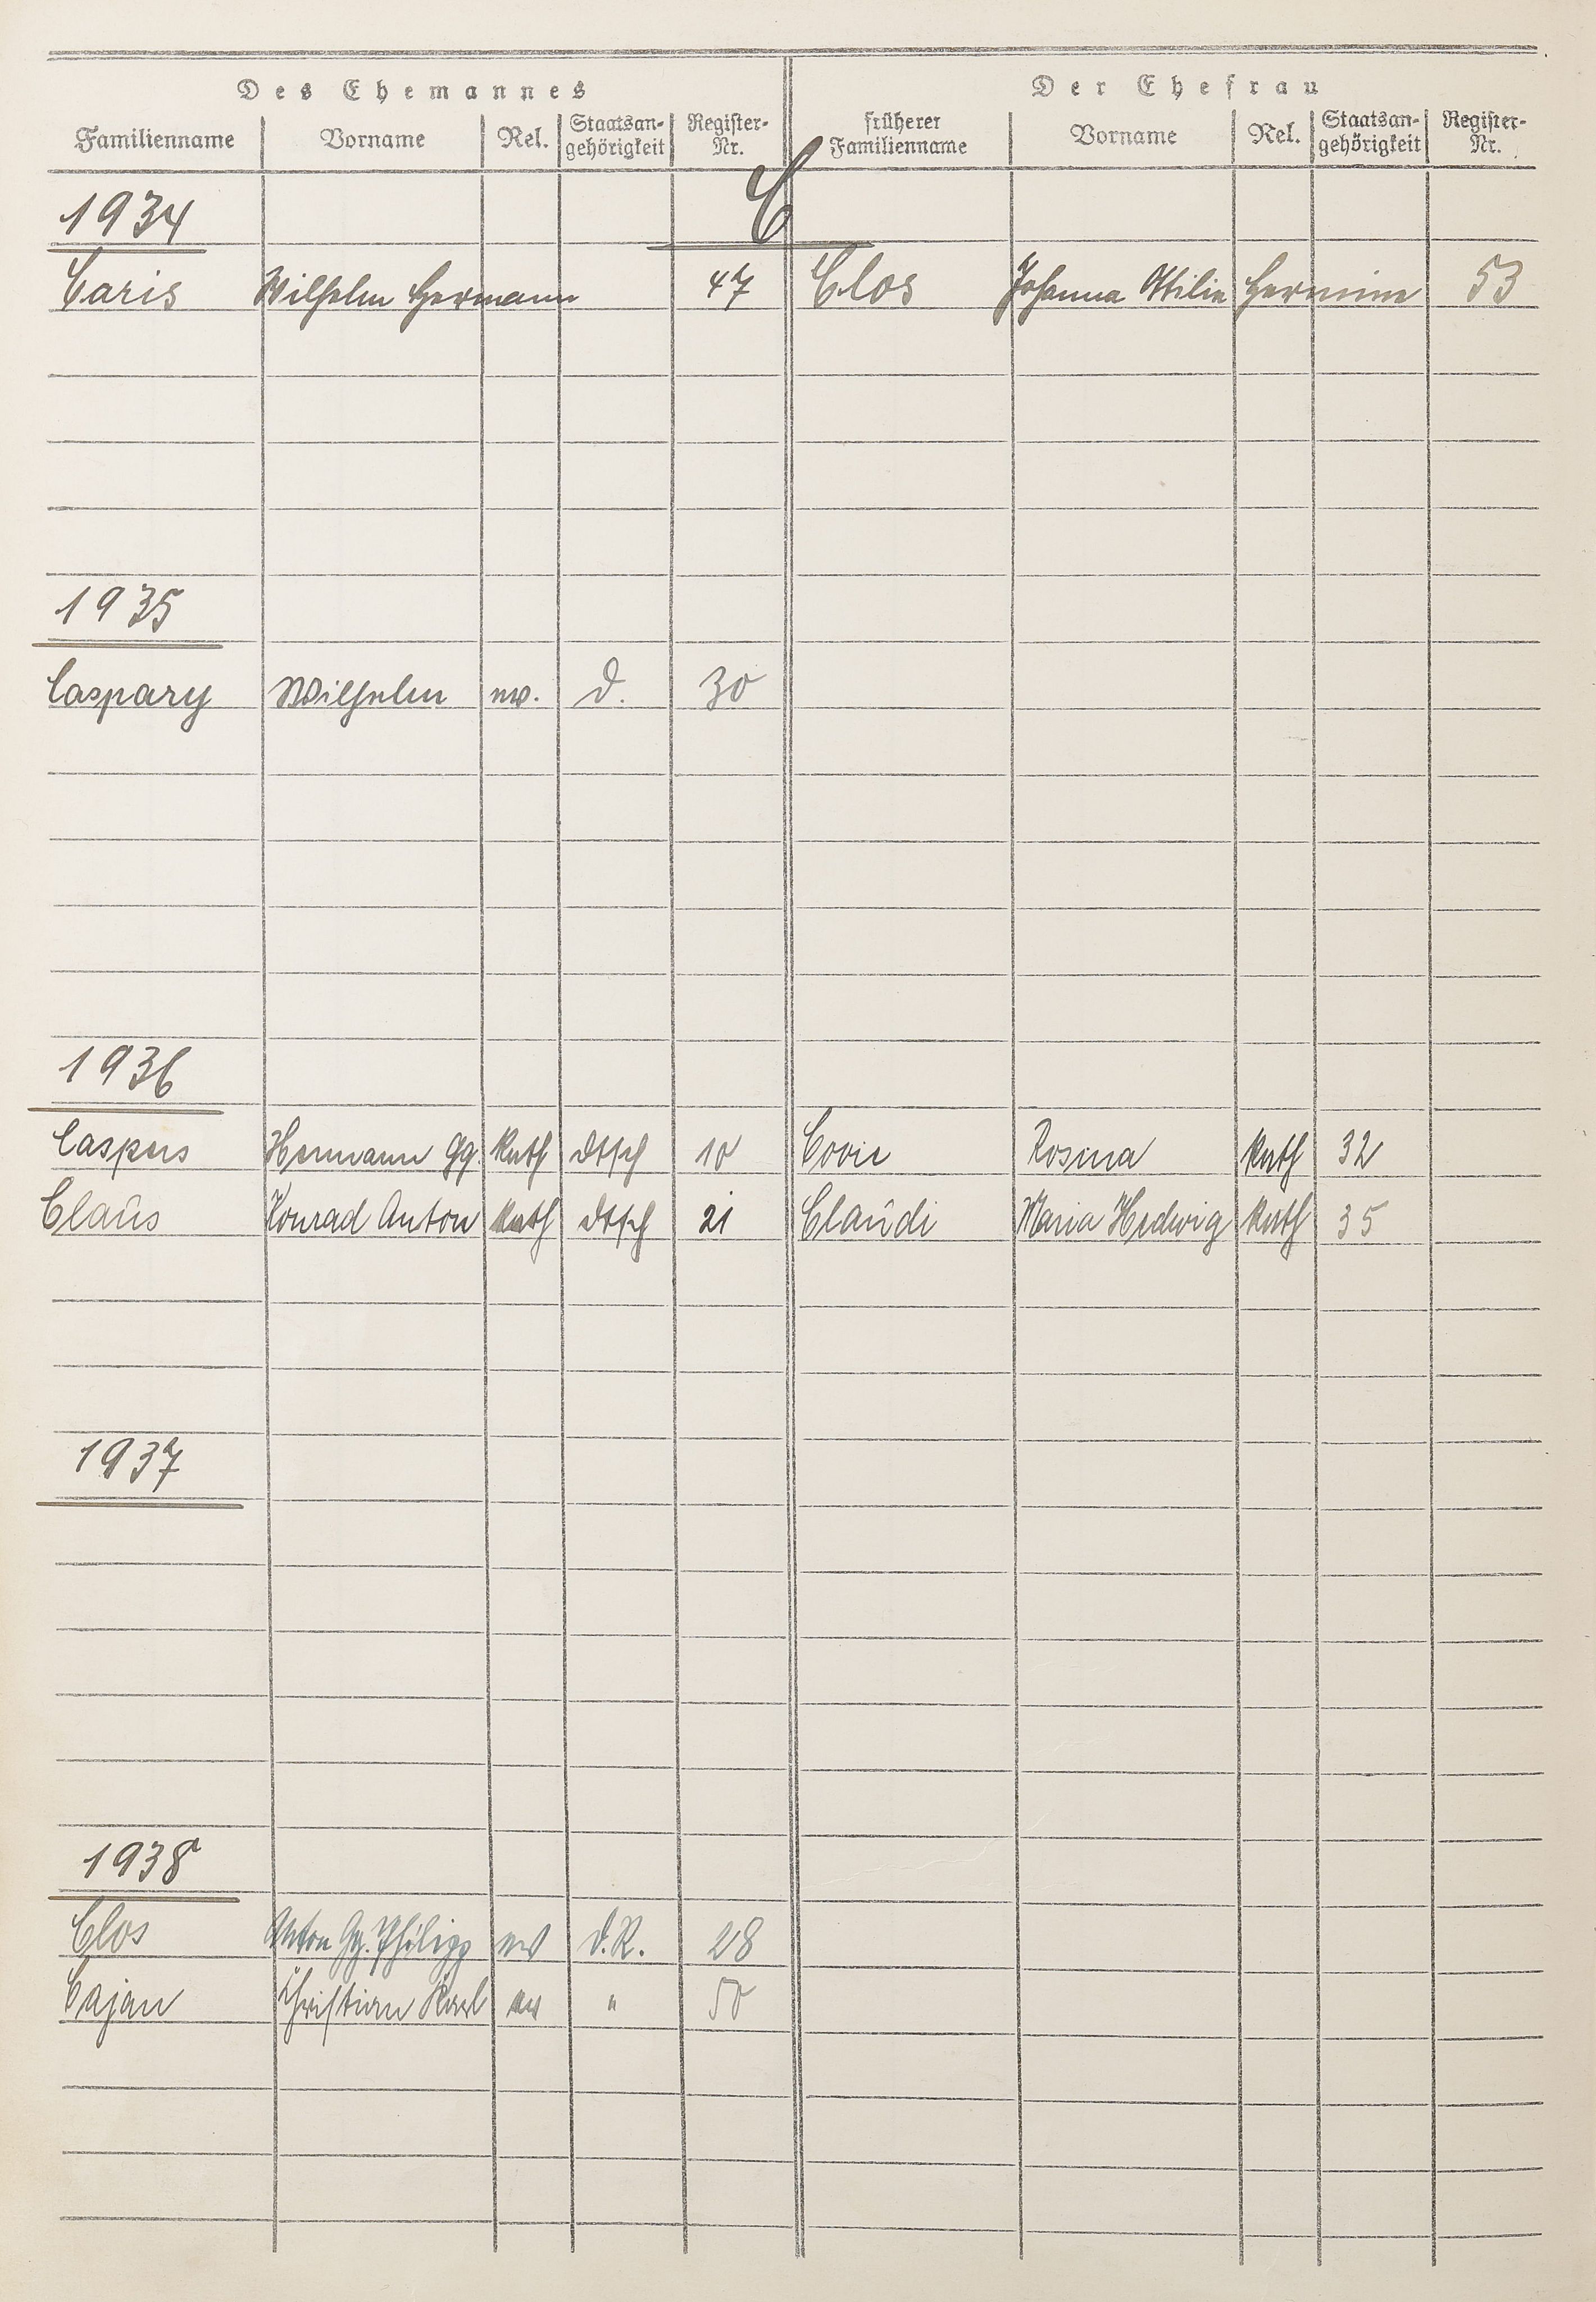 Des Ehemannes Der Ehefrau
Familienname Vorname Rel. Staatsan-gehörigkeit Register-Nr. früherer Familienname Vorname Rel. Staatsan-gehörigkeit Register-Nr.
C
1934
Caris Wilhelm Hermann 47 Clos Johanna Ottilie Hermine 53
1935
Caspary Wilhelm ev. d. 30
1936
Caspers Hermann Gg. Kath dtsch 10 Rosina Kath 32
Claus Konrad Anton Kath dtsch 21 Claudi Maria Hedwig Kath 35
1937
1938
Clos Anton Gg. Philipp ev d.R. 28
Cajan Christian Karl ev " 50